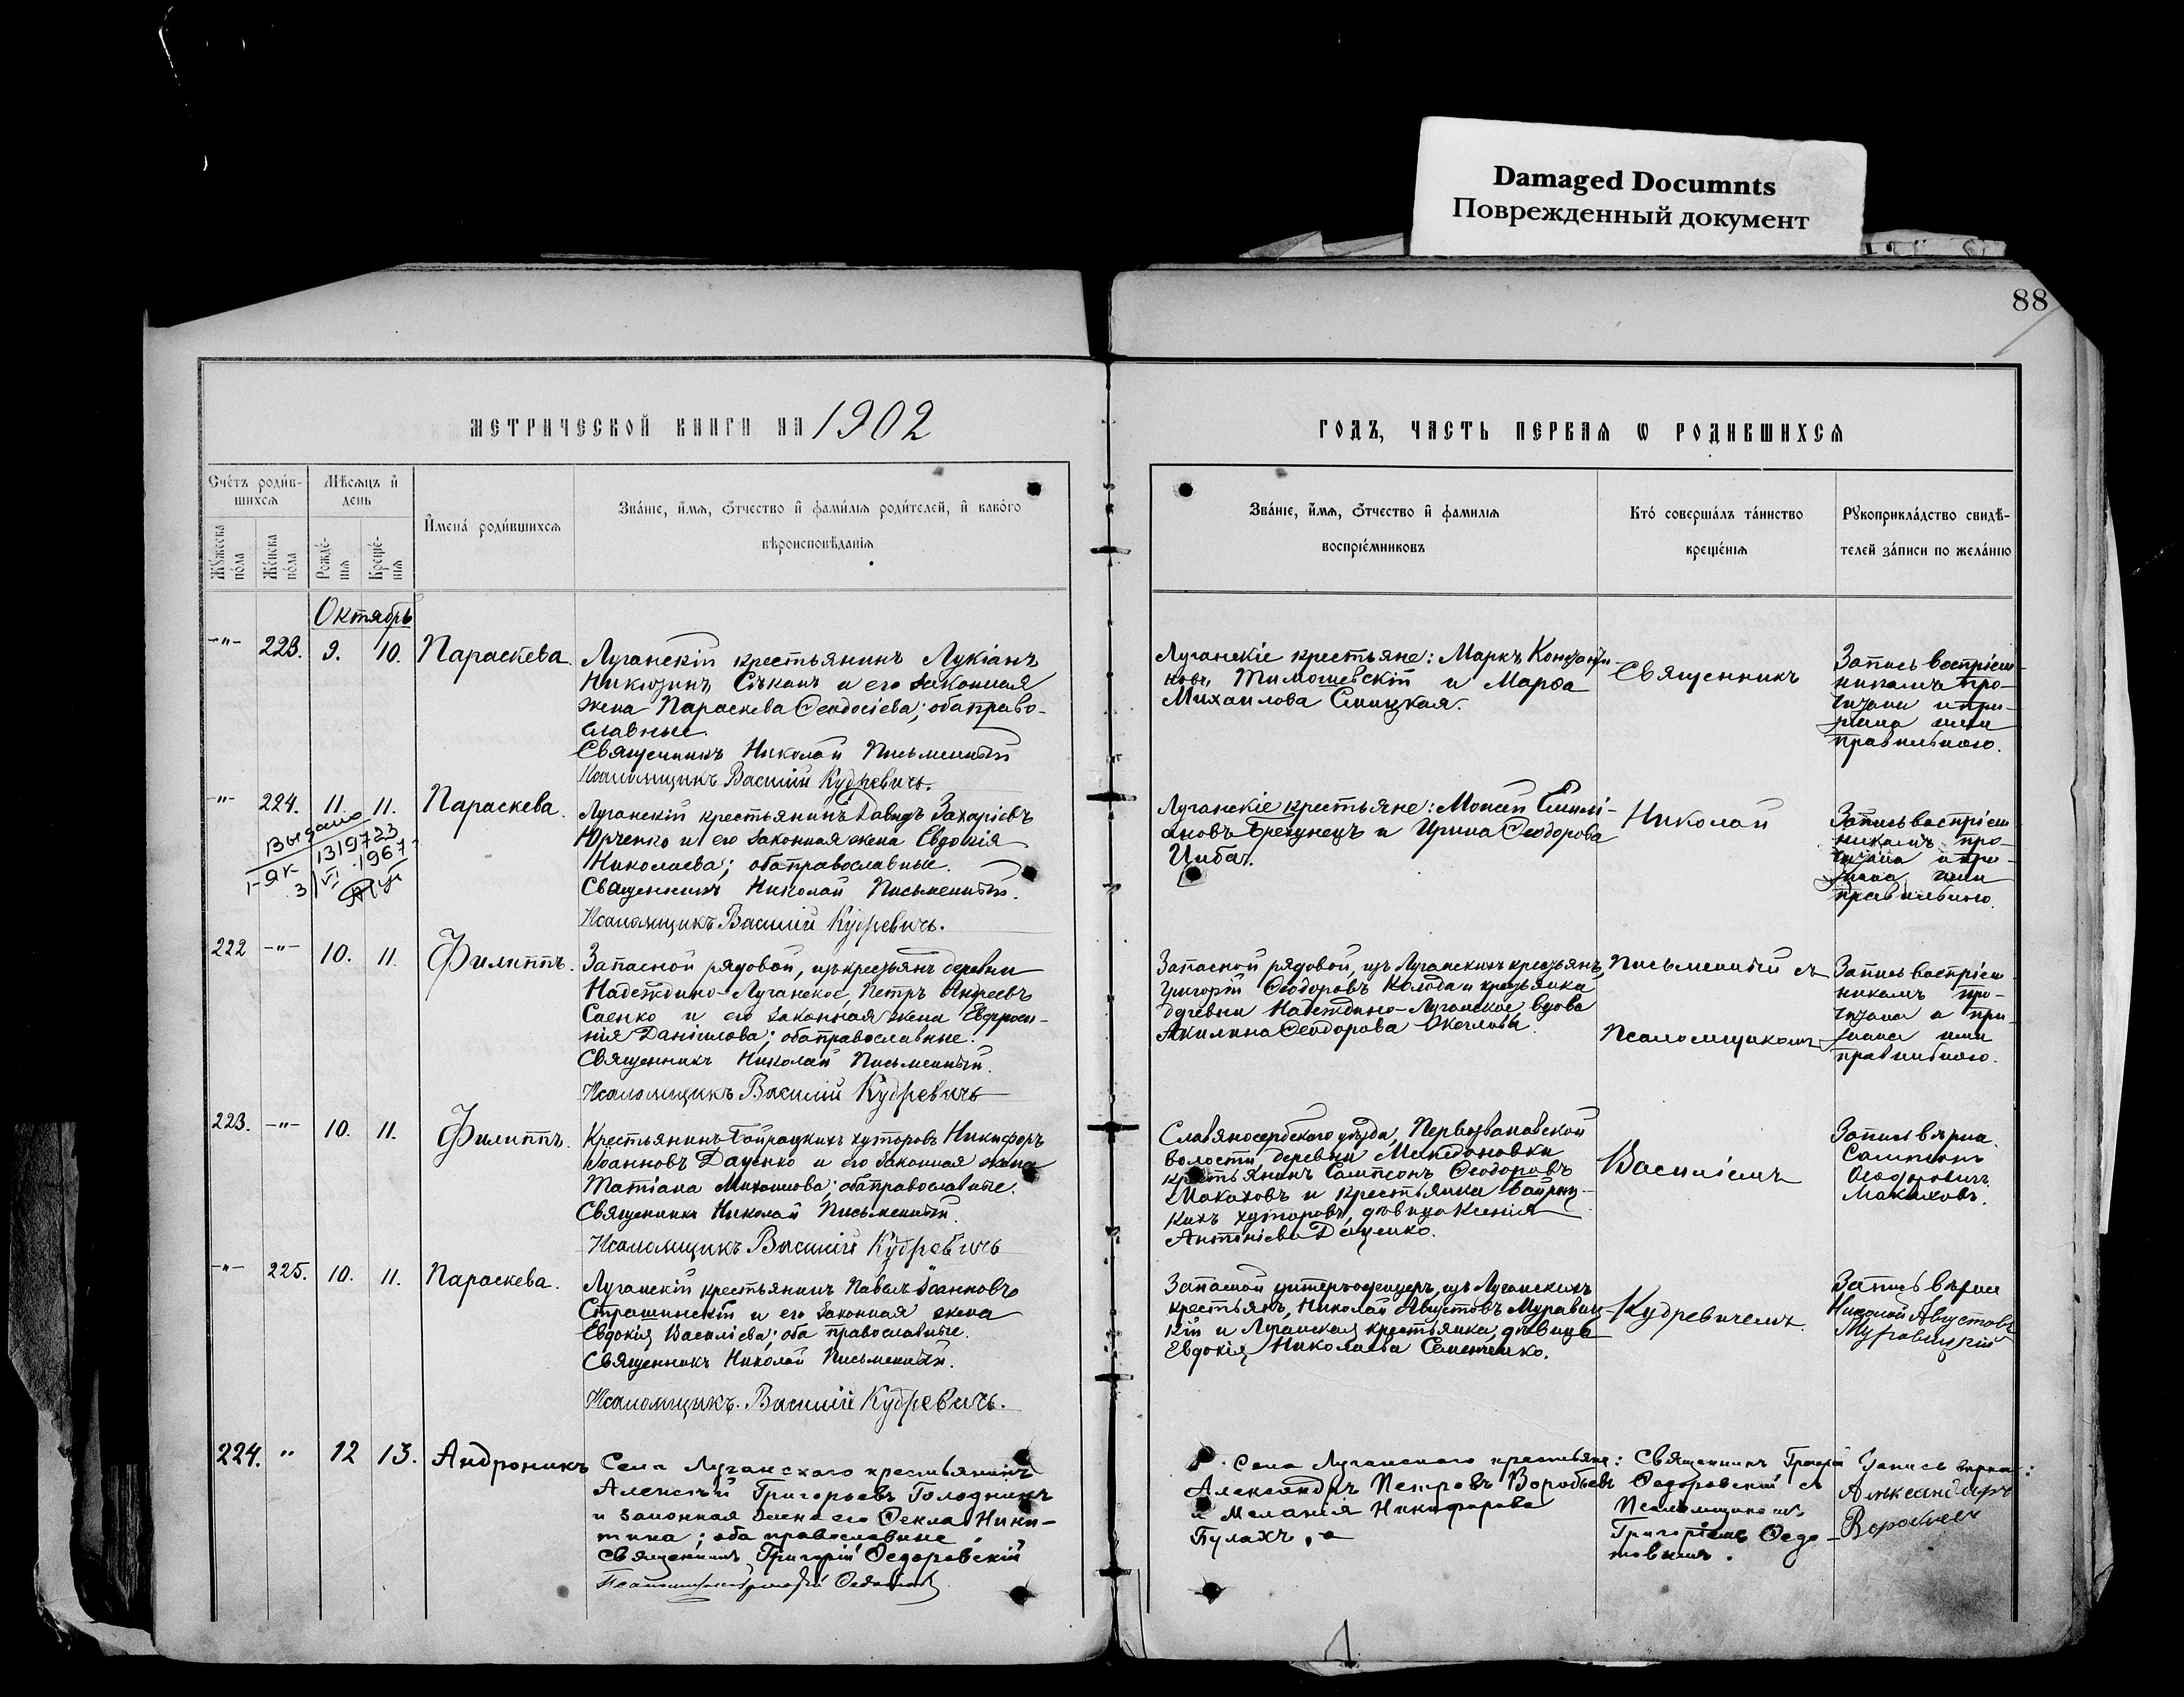 Damaged Documnts
Поврежденный документ
88
МЕТРИЧЕСКОЙ КНИГИ НА 1902
ГОДЪ, ЧАСТЬ ПЕРВАЯ Ѡ РОДИВШИХСЯ
Счётъ роди́в-
шихся
Мѣсяцъ и҆
день
Мужеска
по́ла
Же́нска
по́ла
Рожде́-
нія
Креще́-
нія
И҆мена̀ роди́вшихся
Зва́ніе, и҆́мя, ѻ҆́тчество и҆ фами́лія роди́телей, и҆ како́го
вѣроисповѣ́данія
Зва́ніе, и҆́мя, ѻ҆́тчество и҆ фами́лія
воспріе́мниковъ
Кто̀ соверша́лъ та́инство
креще́нія
Рукоприкла́дство свидѣ́-
телей за́писи по жела́нію
Октябрь
-"- 223. 9. 10. Параскева.
Луганскій крестьянинъ Лукіанъ
и его законная
жена Параскева Ѳеодосіева; оба право-
славные.
Священникъ Николай Письменный
Псаломщикъ Василій Кудревичъ.
Луганскіе крестьяне: Маркъ
Тимошевскій и Марѳа
Михаилова Синицкая.
Священникъ
Запись воспріем-
никамъ про-
читана и при-
знана ими
правильною.
-"- 224. 11. 11. Параскева.
Выдано
I-ЯК 1319723
3/VI 1967
Луганскій крестьянинъ Давидъ Захаріевъ
Юрченко и его законная жена Евдокія
Николаева; оба православные.
Священникъ Николай Письменный.
Псаломщикъ Василій Кудревичъ.
Луганскіе крестьяне: Моисей Емилі-
ановъ Брехунецъ и Ирина Ѳеодорова
Циба.
Николай
Запись воспріем-
никамъ про-
читана и при-
знана ими
правильною.
222 -"- 10. 11. Филиппъ.
Запасной рядовой, изъ крестьянъ деревни
Надеждино-Луганское, Петръ Андреевъ
Саенко и его законная жена Евфроси-
нія Даніилова; оба православные.
Священникъ Николай Письменный.
Псаломщикъ Василій Кудревичъ
Запасной рядовой, изъ Луганскихъ крестьянъ,
Григорій Ѳеодоровъ Колода и крестьянка
деревни Надеждино-Луганское, вдова
Акилина Ѳеодорова
Письменный съ
Псаломщикомъ
Запись воспріем-
никамъ про-
читана и при-
знана ими
правильною.
223. -"- 10. 11. Филиппъ.
Крестьянинъ Байрацкихъ хуторовъ Никифоръ
Іоанновъ Даценко и его законная жена
Татіана Михаилова; оба православные.
Священникъ Николай Письменный.
Псаломщикъ Василій Кудревичъ
Славяносербскаго уѣзда, Первозвановской
волости деревни Македоновки
крестьянинъ Сампсонъ Ѳеодоровъ
Макаховъ и крестьянка Байрац-
кихъ хуторовъ, дѣвица Ксенія
Антоніева Даценко.
Василіемъ
Запись вѣрна.
Сампсонъ
Ѳеодоровичъ
Макаховъ.
-"- 225. 10. 11. Параскева.
Луганскій крестьянинъ Павелъ Іоанновъ
Страшинскій и его законная жена
Евдокія Василіева; оба православные.
Священникъ Николай Письменный.
Псаломщикъ. Василій Кудревичъ.
Запасной унтеръ-офицеръ, изъ Луганскихъ
крестьянъ, Николай Августовъ Муравиц-
кій и Луганская крестьянка, дѣвица
Евдокія Николаева Семенченко.
Кудревичемъ.
Запись вѣрна
Николай Августовъ
Муравицкій
224. " 12 13. Андроникъ
Села Луганскаго крестьянинъ
Алексѣй Григорьевъ Голодникъ
и законная жена его Ѳекла Ники-
тина; оба православные
Священникъ Григорій Ѳедоровскій
Села Луганскаго крестьяне:
Александръ Петровъ Воробьевъ
и Меланія Никифорова
Булахъ.
Священникъ Григорій
Ѳедоровскій съ
Псаломщикомъ
Григоріемъ Ѳедо-
товымъ.
Запись вѣрна:
Александръ
Воробьевъ